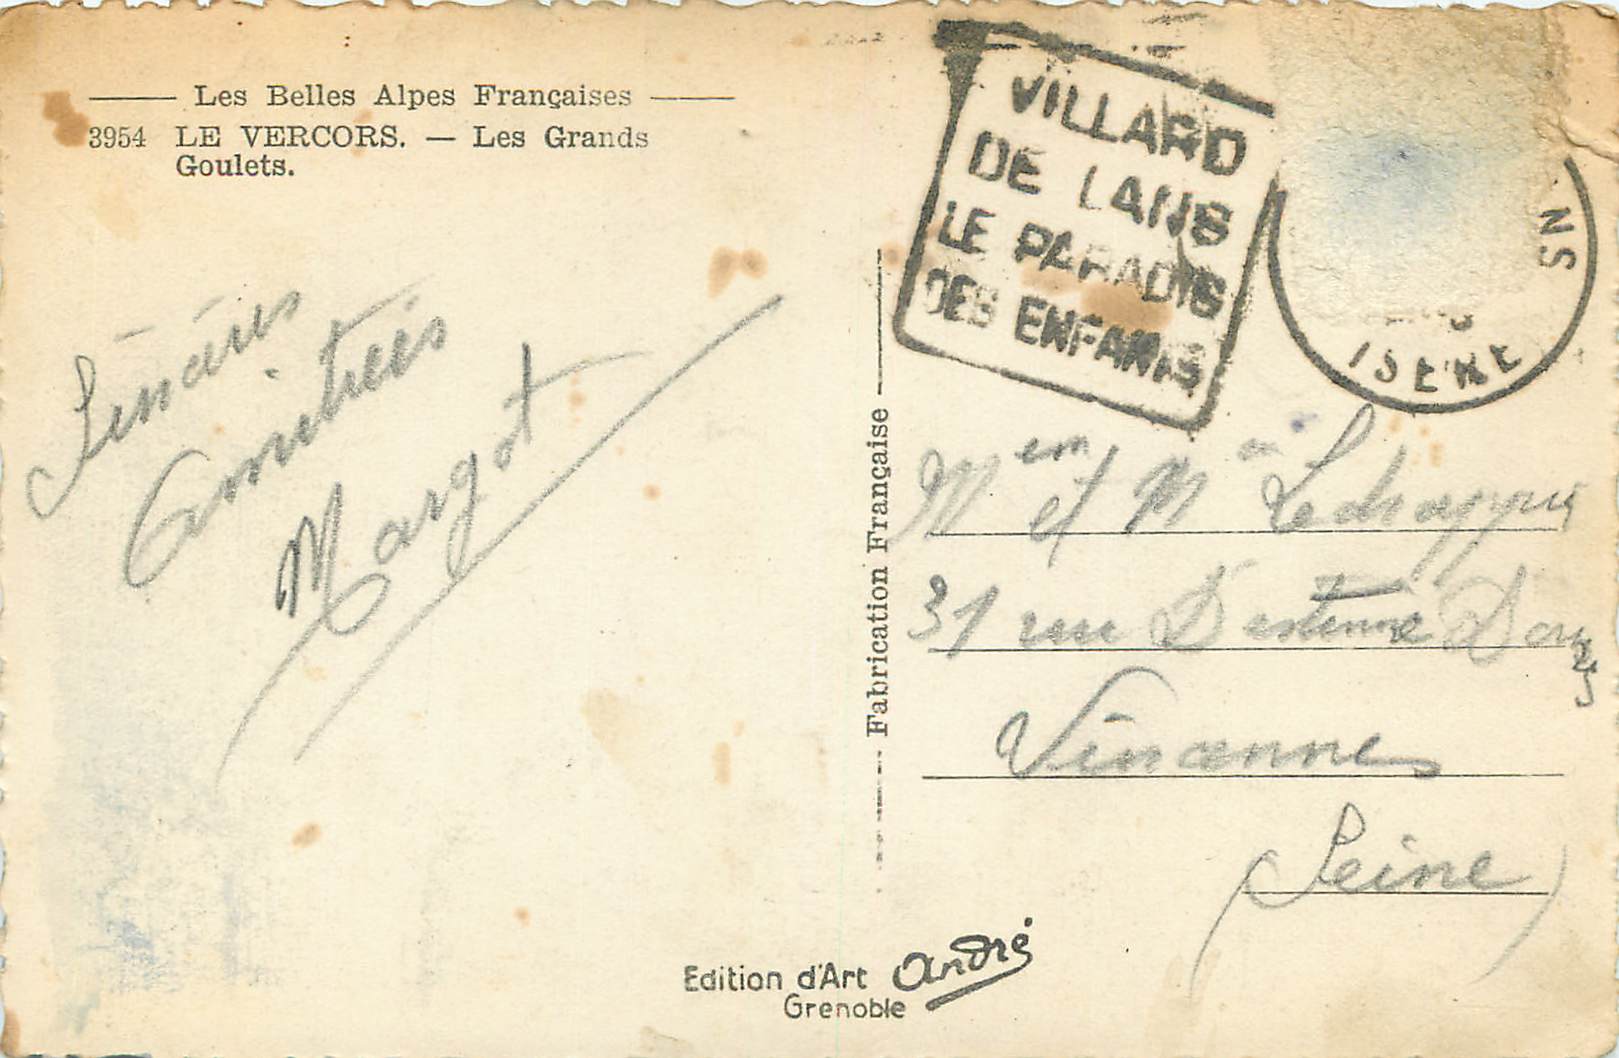 Les Belles Alpes Françaises
3954 LE VERCORS. — Les Grands
Goulets.
VILLARD
DE LANS
LE PARADIS
DES ENFANTS
NS
ISERE
Sincères
Amitiées
Margot
Fabrication Française
Mem et Mr
31 rue D'estienne Dorves
Vincennes
(Seine)
Edition d'Art André
Grenoble